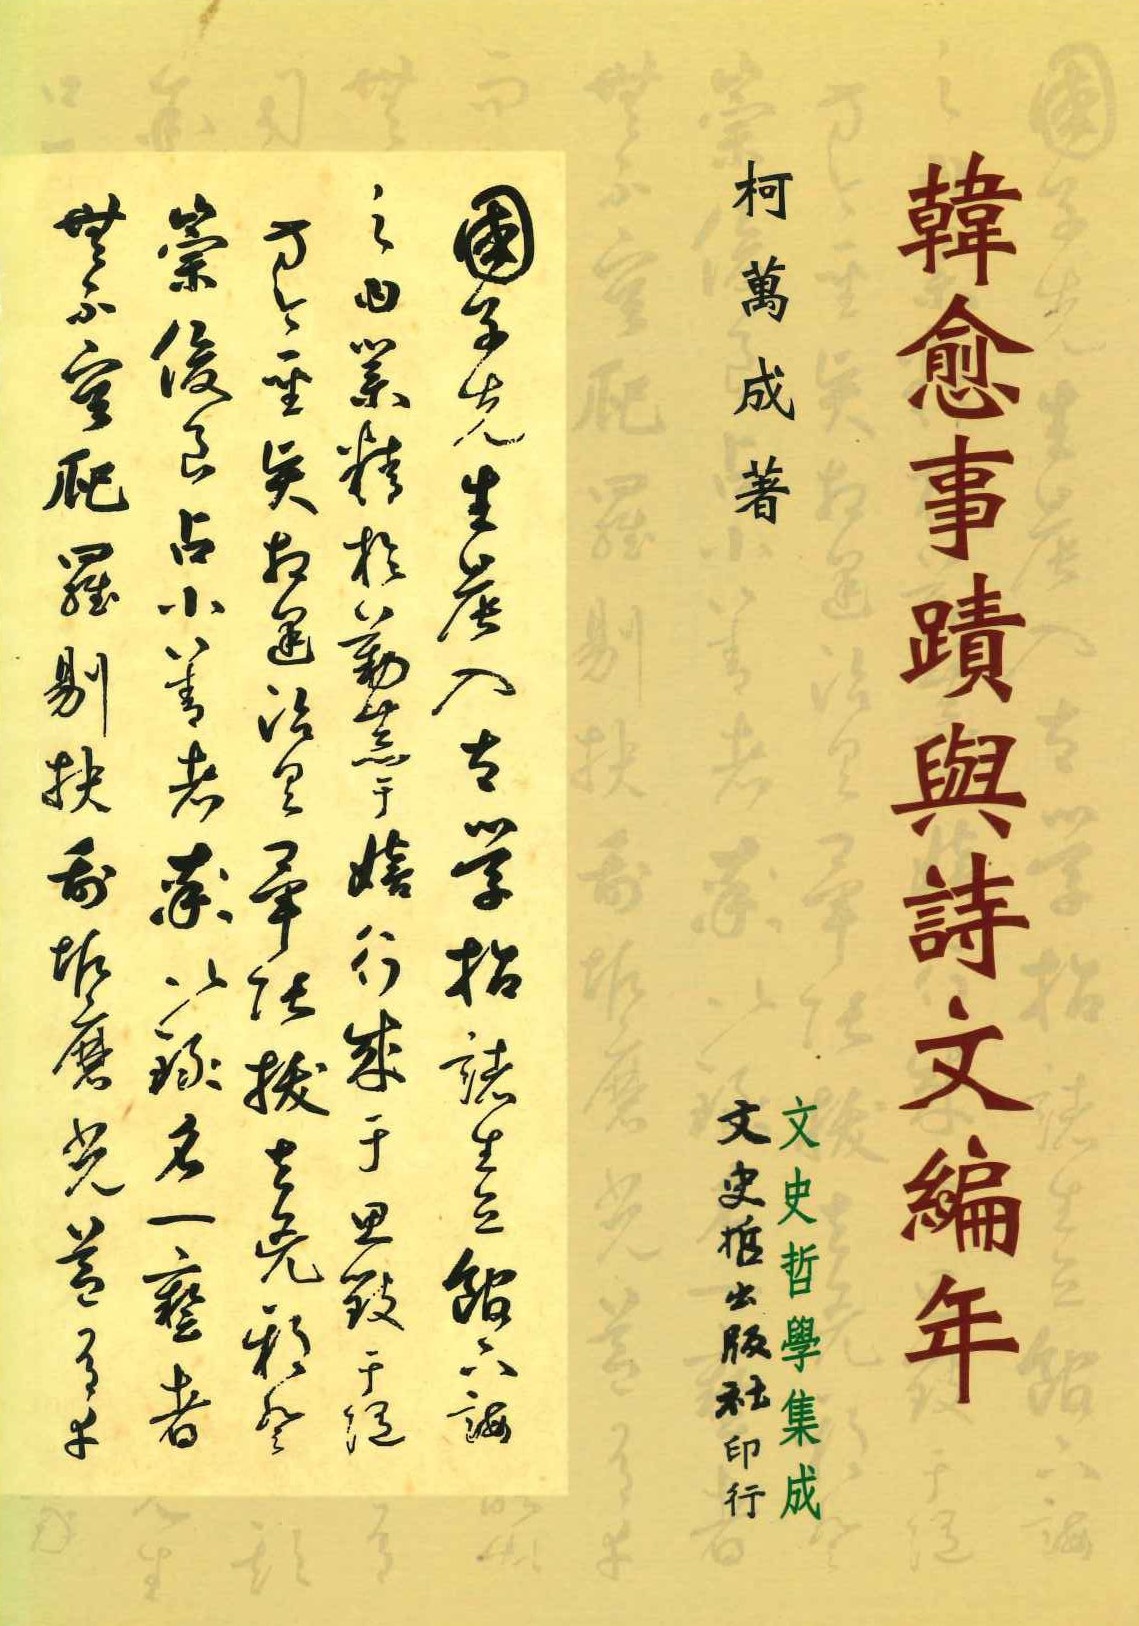 韓愈事蹟與詩文編年
柯萬成著
文史哲學集成
文史哲出版社印行
國子先生晨入太學招諸生立館下誨
之曰業精於勤荒于嬉行成于思毀于隨
方今聖賢相逢治具畢張拔去兇邪登
崇俊良占小善者率以錄名一藝者
無不庸爬羅剔抉刮垢磨光蓋有幸